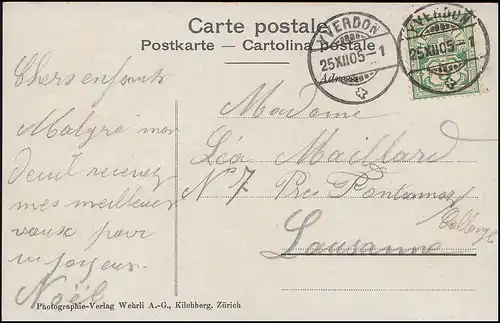 Carte postale
Postkarte — Cartolina postale
YVERDON
25.XII.05.–1
YVERDON
25.XII.05.–1
Adresse
Chers enfants
Malgré mon
deuil recevez
mes meilleurs
vœux pour
un joyeux
Noël
Madame
Léa Maillard
N° 7 Pré
Lausanne
Photographie-Verlag Wehrli A.-G., Kilchberg, Zürich